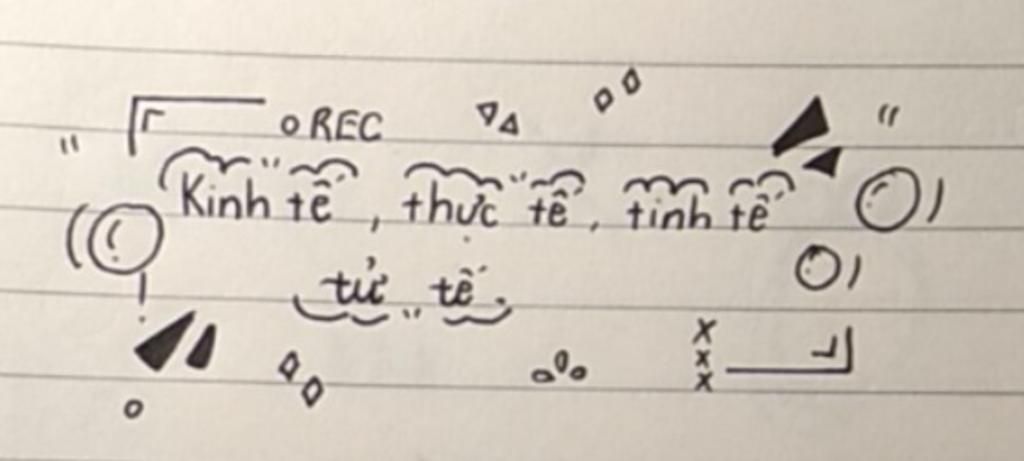 REC
Kinh tế, thực tế, tinh tế
tử tế.